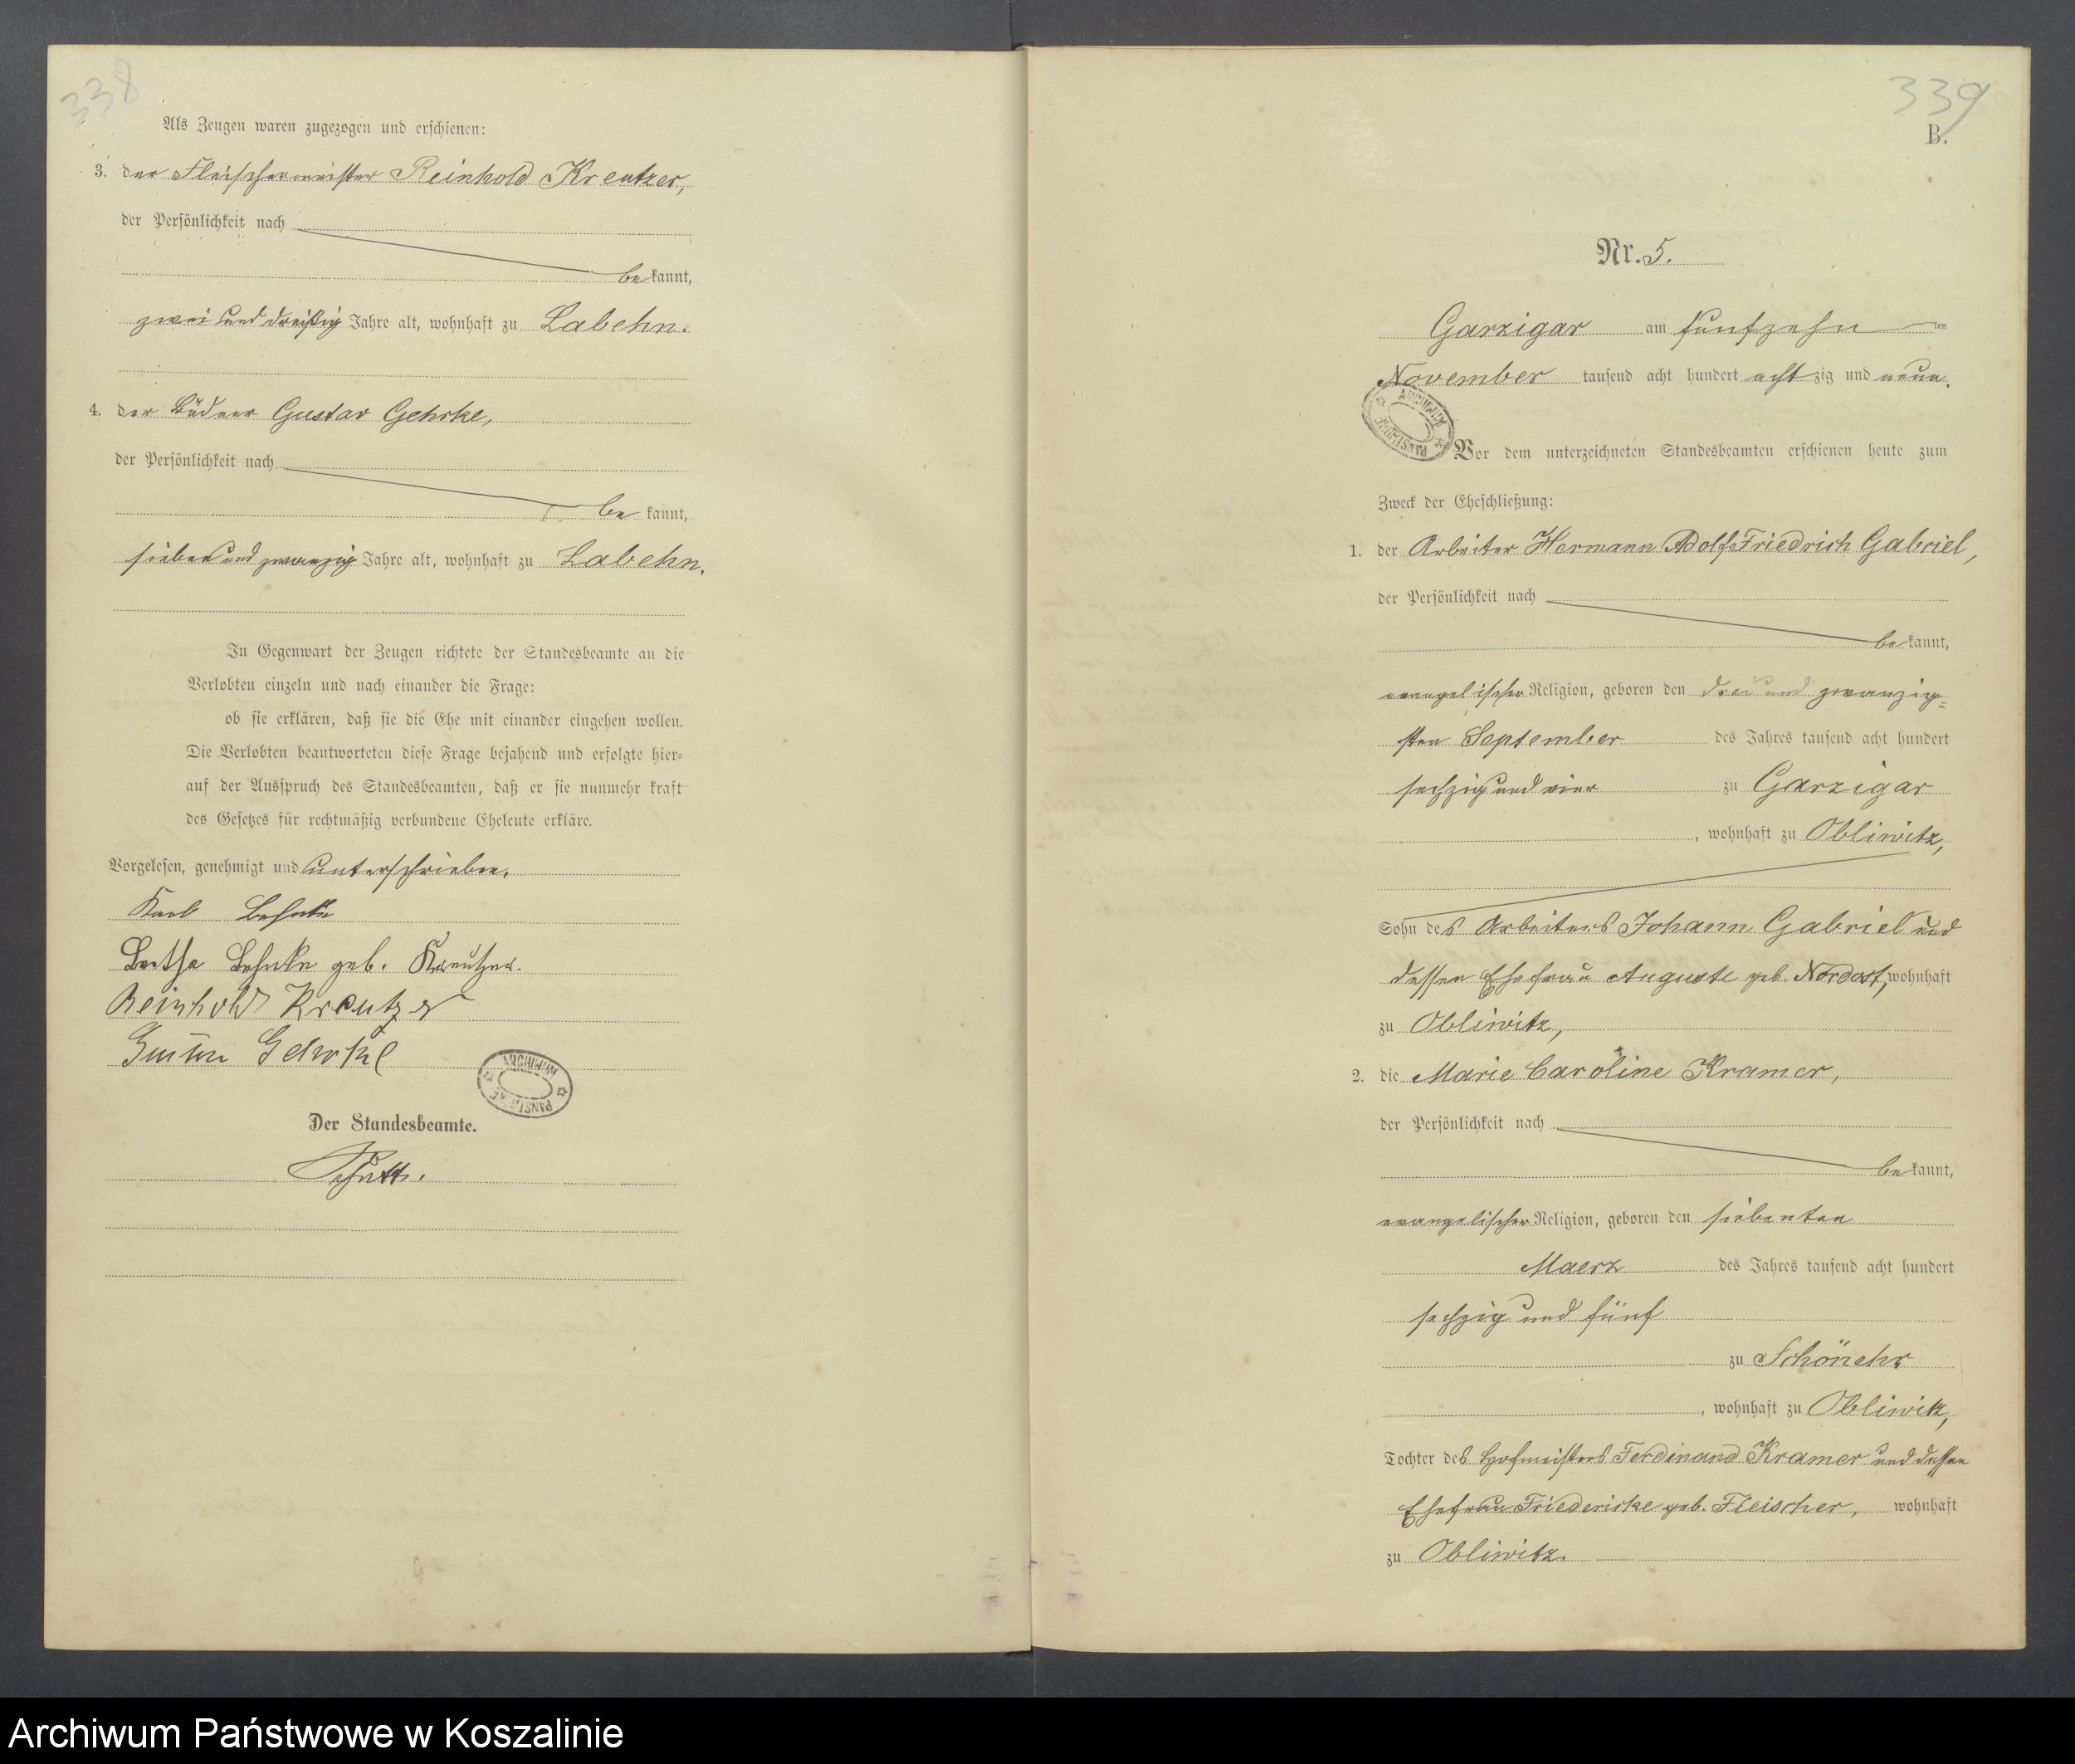 338
Als Zeugen waren zugezogen und erschienen:
3. der Fleischermeister Reinhold Kreutzer,
der Persönlichkeit nach
bekannt,
zwei und dreißig Jahre alt, wohnhaft zu Labehn.
4. der Büdner Gustav Gehrke,
der Persönlichkeit nach
be kannt,
sieben und zwanzig Jahre alt, wohnhaft zu Labehn.
In Gegenwart der Zeugen richtete der Standesbeamte an die
Verlobten einzeln und nach einander die Frage:
ob sie erklären, daß sie die Ehe mit einander eingehen wollen.
Die Verlobten beantworteten diese Frage bejahend und erfolgte hier-
auf der Ausspruch des Standesbeamten, daß er sie nunmehr kraft
des Gesetzes für rechtmäßig verbundene Eheleute erkläre.
Vorgelesen, genehmigt und unterschrieben.
Karl Behnke
Bertha Behnke geb. Kreutzer.
Reinhold Kreutzer
Gustav Gehrke
ARCHIWUM PAŃSTWOWE
Der Standesbeamte.
339
B.
Nr. 5.
Garzigar am fünfzehn ten
November tausend acht hundert achtzig und neun.
ARCHIWUM PAŃSTWOWE
Vor dem unterzeichneten Standesbeamten erschienen heute zum
Zweck der Eheschließung:
1. der Arbeiter Hermann Adolf Friedrich Gabriel,
der Persönlichkeit nach
bekannt,
evangelischer Religion, geboren den drei und zwanzig=
sten September des Jahres tausend acht hundert
sechzig und vier zu Garzigar
, wohnhaft zu Obliwitz,
Sohn des Arbeiters Johann Gabriel und
dessen Ehefrau Auguste geb. Nordost, wohnhaft
zu Obliwitz,
2. die Marie Caroline Kramer,
der Persönlichkeit nach
bekannt,
evangelischer Religion, geboren den siebenten
Maerz des Jahres tausend acht hundert
sechzig und fünf
zu Schönehr
, wohnhaft zu Obliwitz,
Tochter des Hofmeisters Ferdinand Kramer und dessen
Ehefrau Friederike geb. Fleischer, wohnhaft
zu Obliwitz.
Archiwum Państwowe w Koszalinie